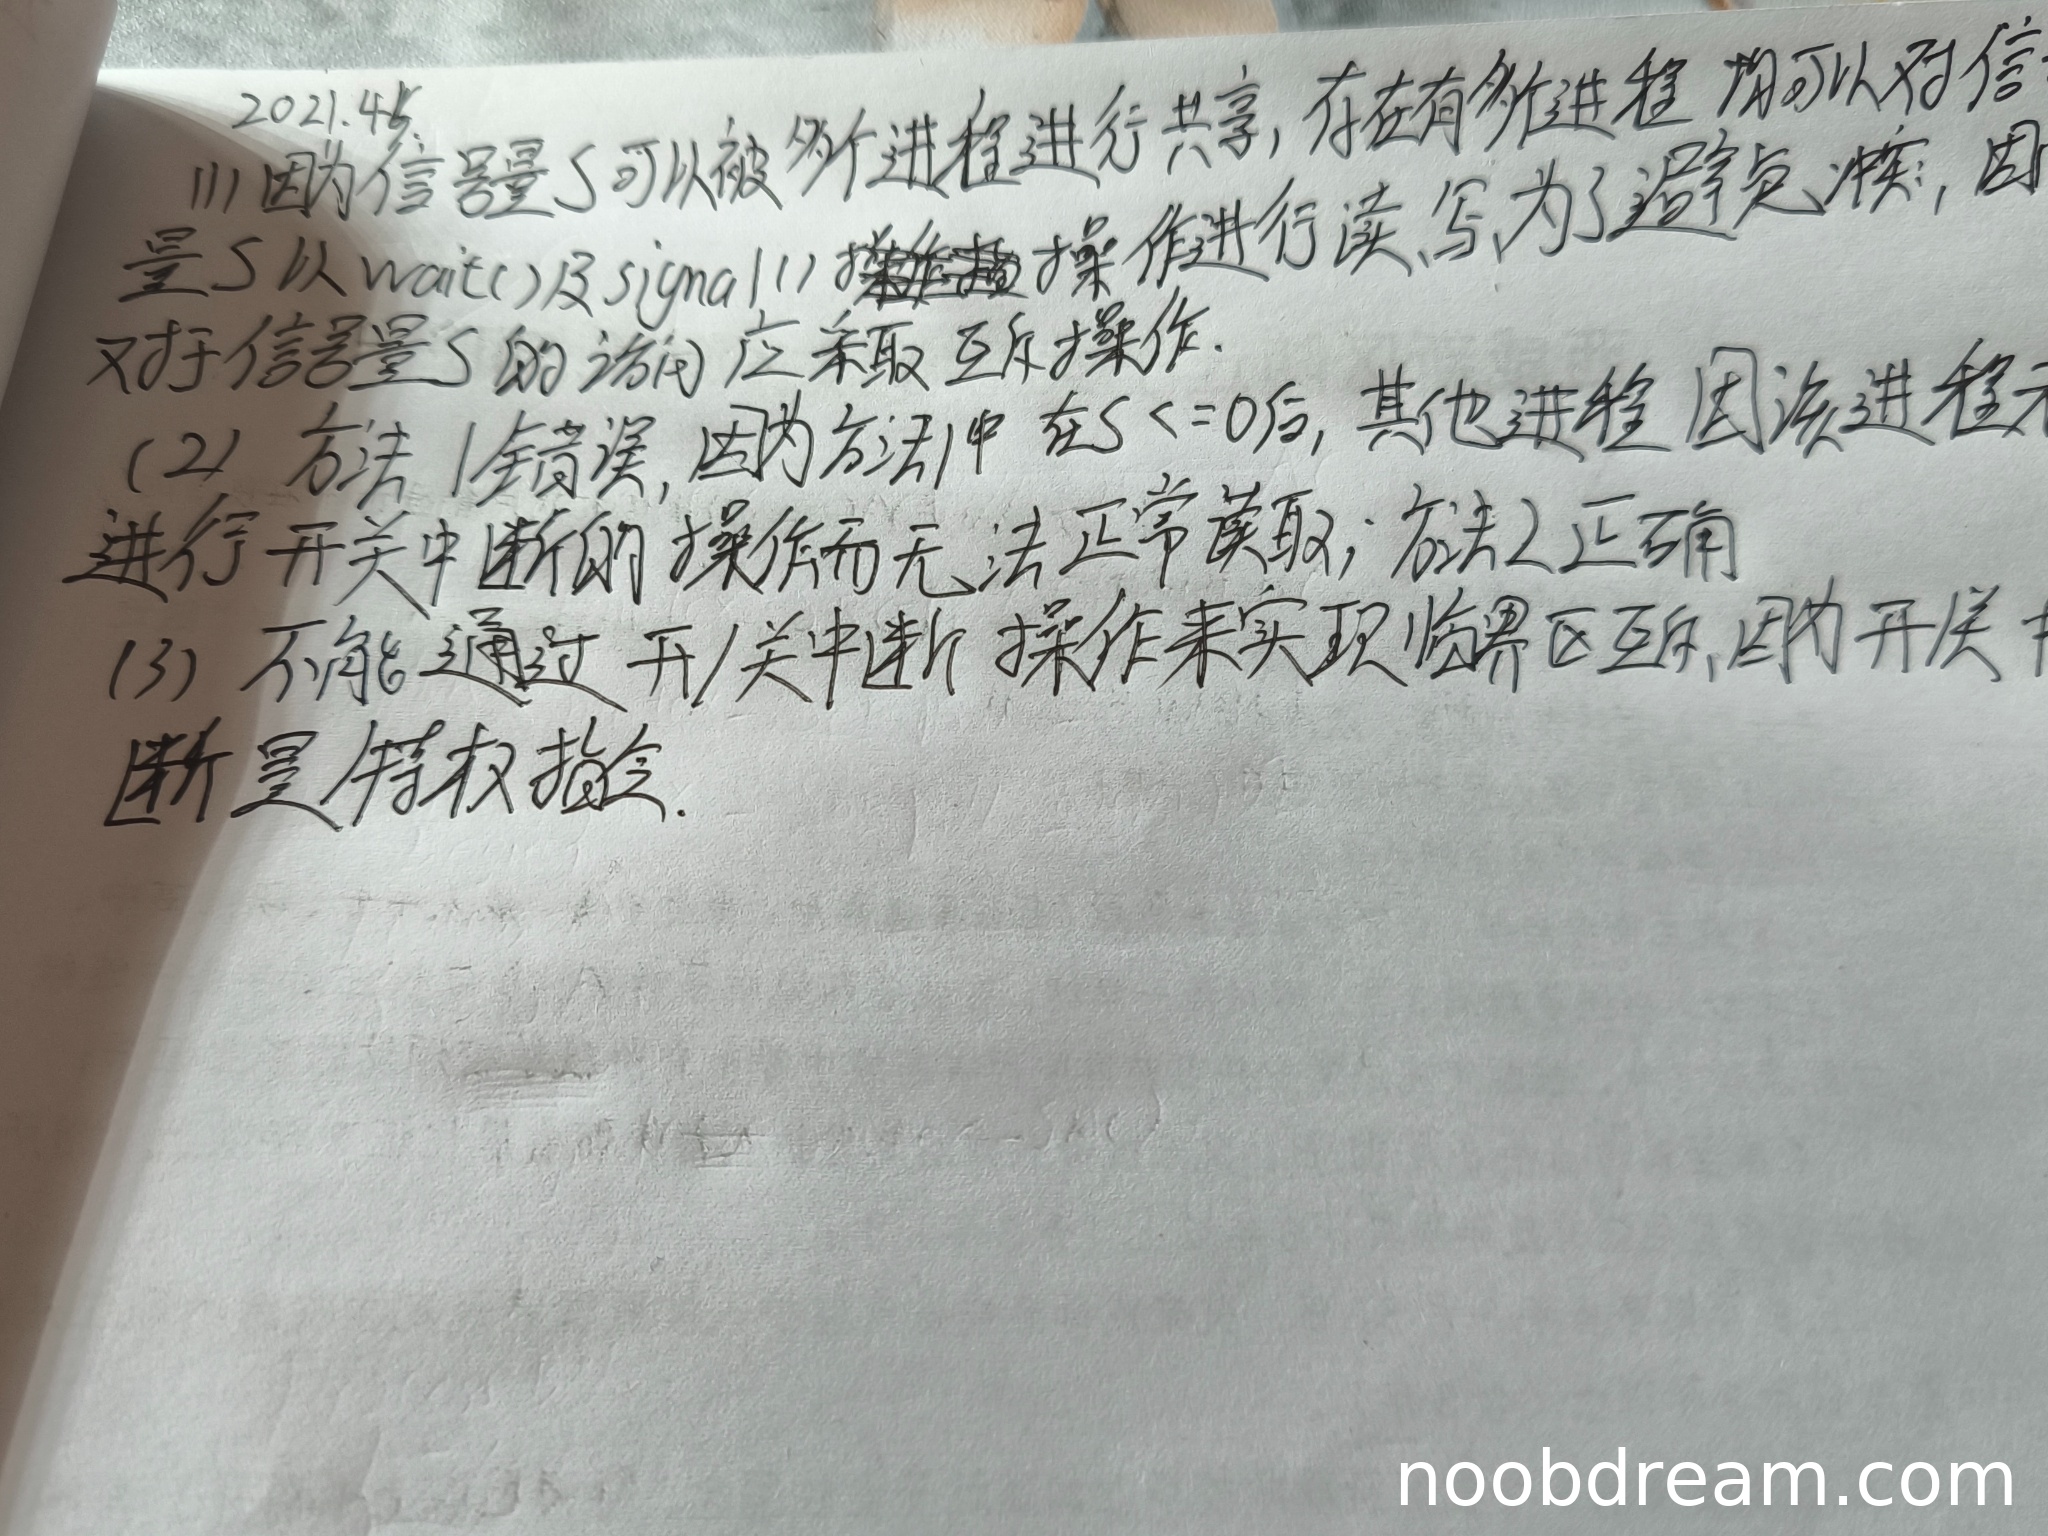 2021.45
(1)因为信号量S可以被多个进程进行共享,存在有多个进程均可以对信
量S以wait()及signal()操作进行读、写,为了避免冲突,因
对于信号量S的访问应采取互斥操作.
(2) 方法1错误,因为方法1中在S<=0后,其他进程因该进程无
进行开关中断的操作而无法正常读取;方法2正确
(3) 不能通过开/关中断操作来实现临界区互斥,因为开/关
断是特权指令.
noobdream.com